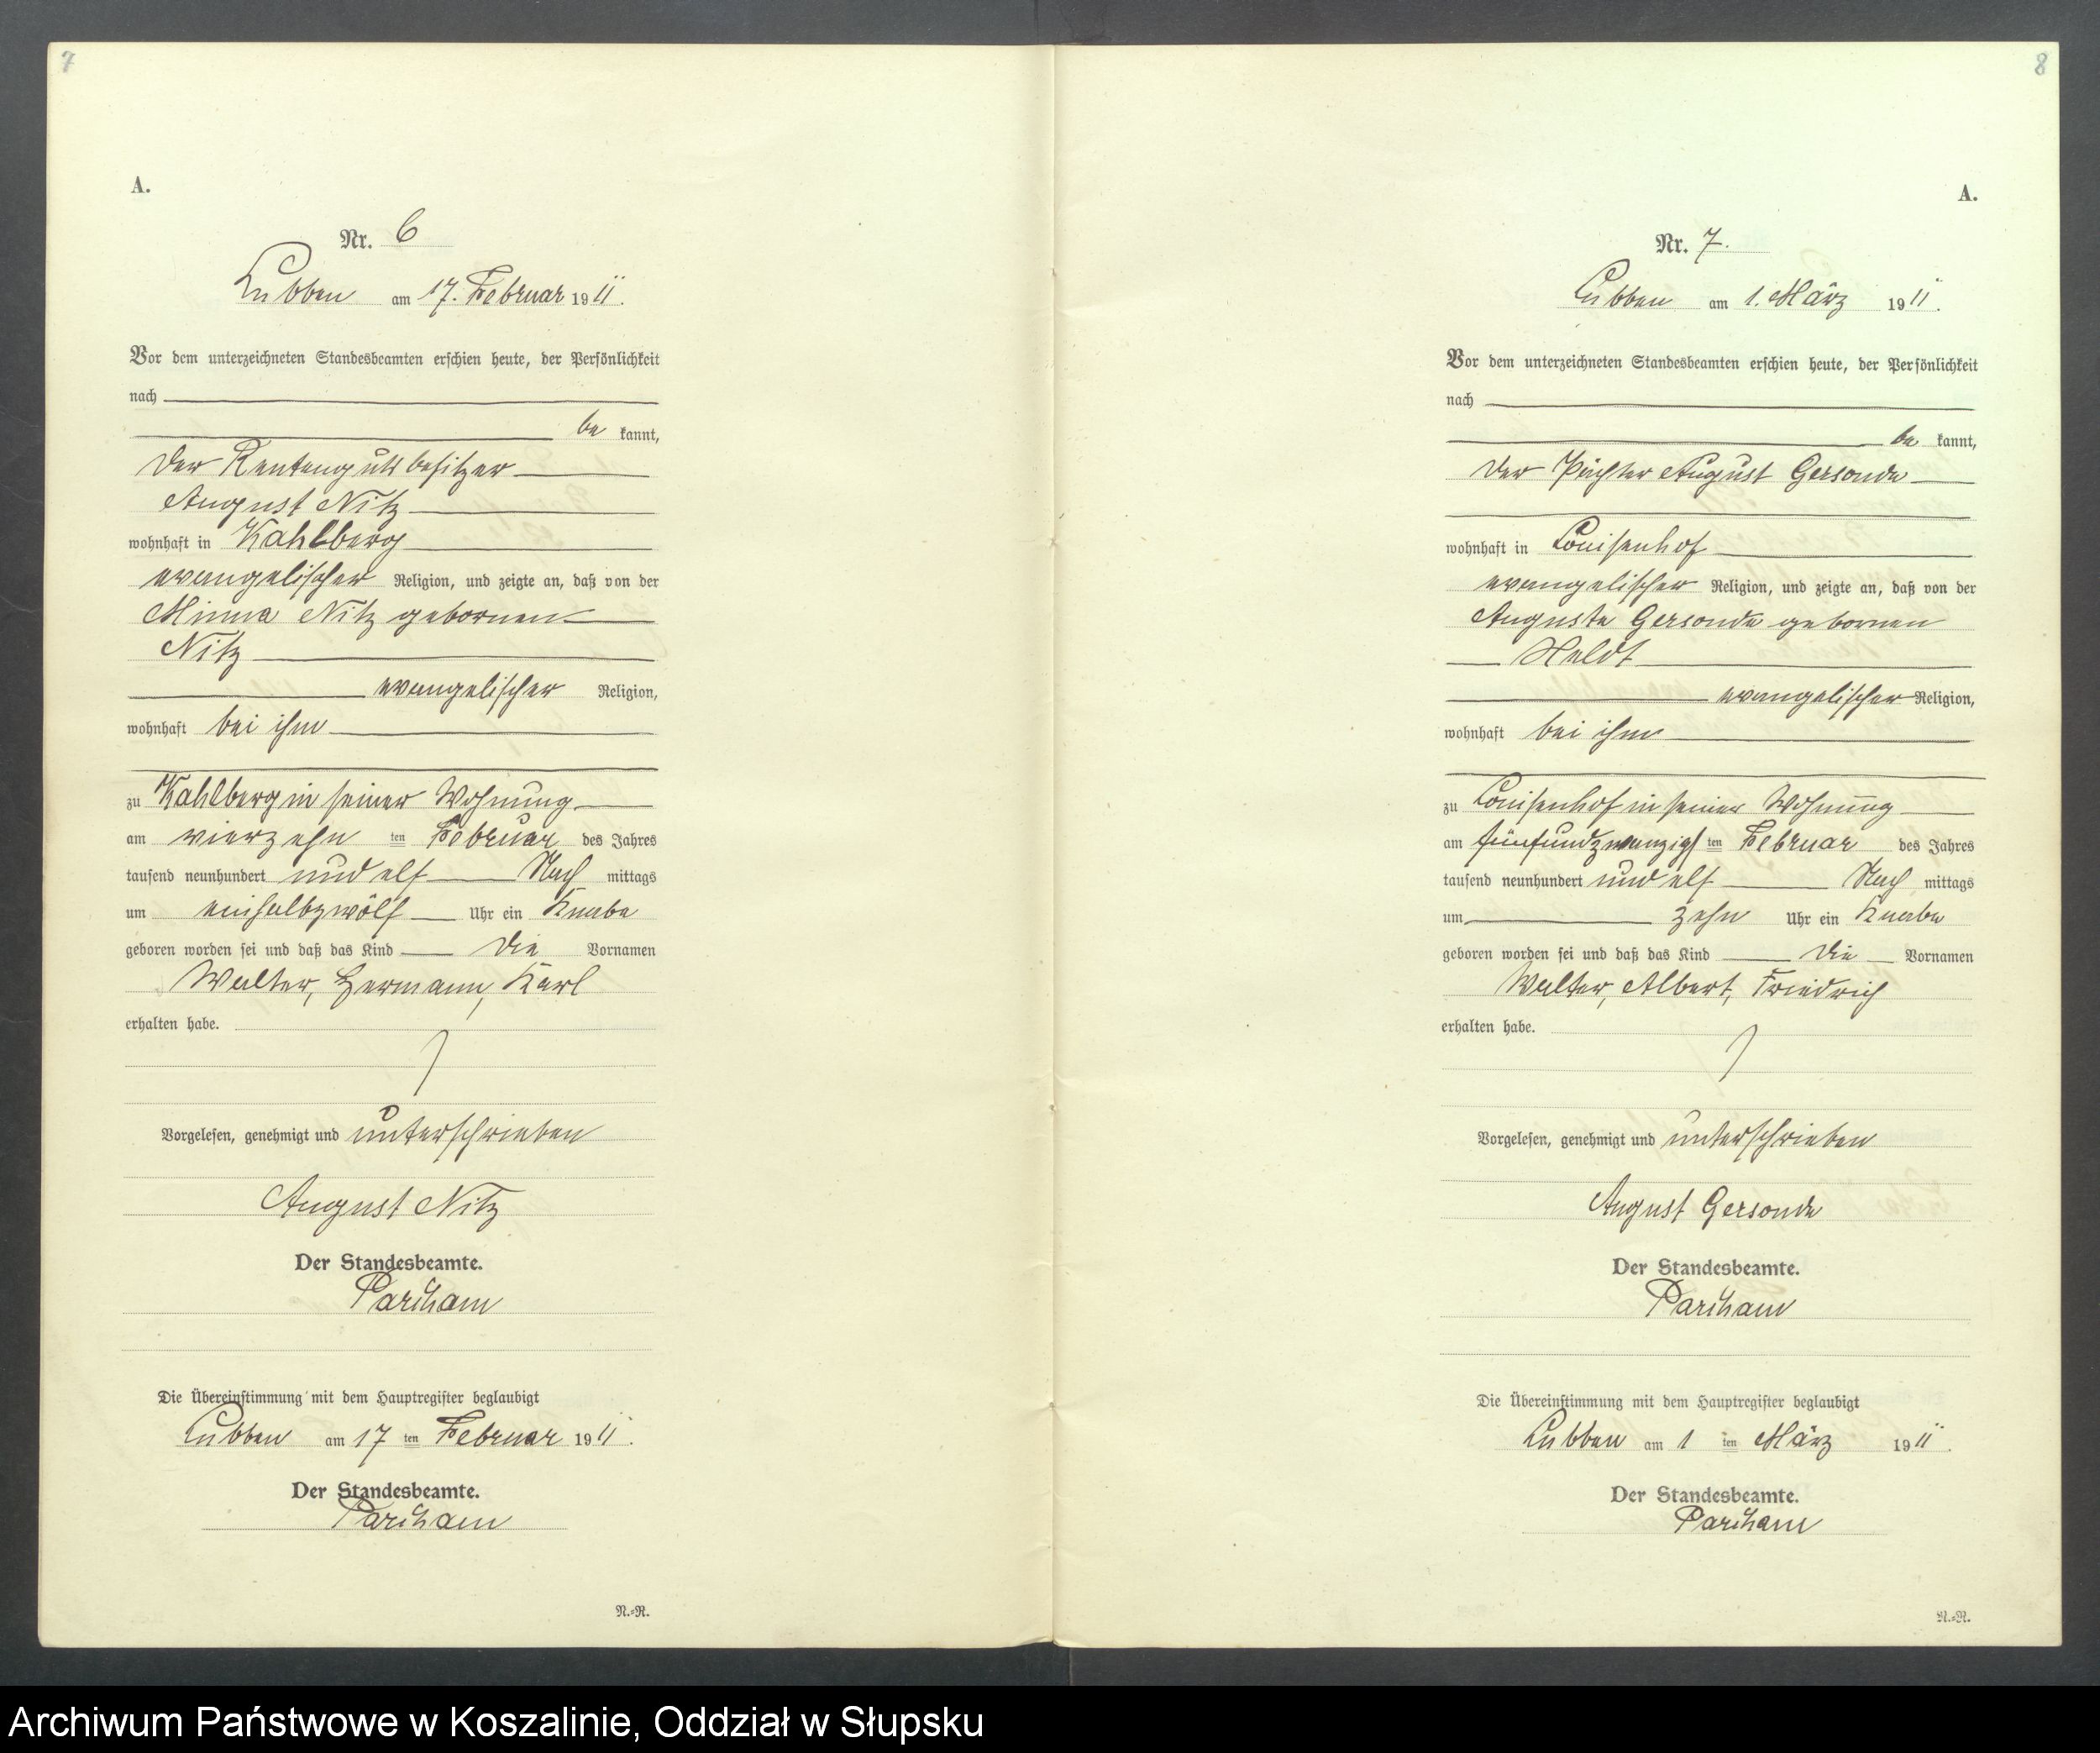 7
A.
Nr. 6
Lubben am 17. Februar 1911.
Vor dem unterzeichneten Standesbeamten erschien heute, der Persönlichkeit
nach
be kannt,
der Rentengutsbesitzer
August Nitz
wohnhaft in Kahlberg
evangelischer Religion, und zeigte an, daß von der
Minna Nitz gebornen
Nitz
evangelischer Religion,
wohnhaft bei ihm
zu Kahlberg in seiner Wohnung
am vierzehn ten Februar des Jahres
tausend neunhundert und elf Nach mittags
um einhalbzwölf Uhr ein Knabe
geboren worden sei und daß das Kind die Vornamen
Walter, Hermann, Karl
erhalten habe.
Vorgelesen, genehmigt und unterschrieben
August Nitz
Der Standesbeamte.
Parcham
Die Übereinstimmung mit dem Hauptregister beglaubigt
Lubben am 17 ten Februar 1911.
Der Standesbeamte.
Parcham
N.=R.
8
A.
Nr. 7.
Lubben am 1. März 1911.
Vor dem unterzeichneten Standesbeamten erschien heute, der Persönlichkeit
nach
be kannt,
der Pächter August Gersonde
wohnhaft in Louisenhof
evangelischer Religion, und zeigte an, daß von der
Auguste Gersonde gebornen
Heldt
evangelischer Religion,
wohnhaft bei ihm
zu Louisenhof in seiner Wohnung
am fünfundzwanzigs ten Februar des Jahres
tausend neunhundert und elf Nach mittags
um zehn Uhr ein Knabe
geboren worden sei und daß das Kind die Vornamen
Walter, Albert, Friedrich
erhalten habe.
Vorgelesen, genehmigt und unterschrieben
August Gersonde
Der Standesbeamte.
Parcham
Die Übereinstimmung mit dem Hauptregister beglaubigt
Lubben am 1 ten März 1911.
Der Standesbeamte.
Parcham
N.=R.
Archiwum Państwowe w Koszalinie, Oddział w Słupsku